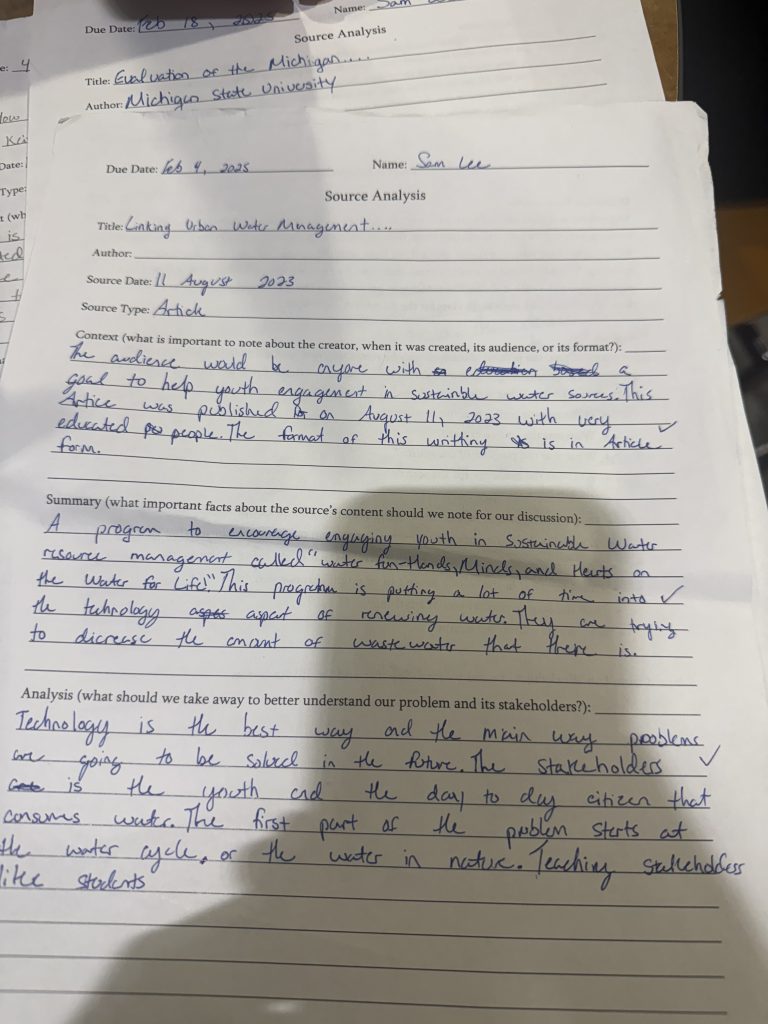 Due Date: Feb 18, 2025
Name: Sam
Source Analysis
Title: Evaluation of the Michigan....
Author: Michigan State University
Due Date: Feb 4, 2025
Name: Sam Lee
Source Analysis
Title: Linking Urban Water Mnagement....
Author:
Source Date: 11 August 2023
Source Type: Article
Context (what is important to note about the creator, when it was created, its audience, or its format?):
The audience would be anyone with a
goal to help youth engagement in sustainble water sources. This
Artice was published on August 11, 2023 with very
educated people. The format of this writting is in Article
form.
Summary (what important facts about the source's content should we note for our discussion):
A program to encourage engaging youth in Sustainable Water
resource management called "water fun-Hands, Minds, and Hearts on
the Water for Life!" This program is putting a lot of time into
the technology aspect of renewing water. They are trying
to dicrease the amount of wastewater that there is.
Analysis (what should we take away to better understand our problem and its stakeholders?):
Technology is the best way and the main way problems
are going to be solved in the future. The stakeholders
is the youth and the day to day citizen that
consumes water. The first part of the problem starts at
the water cycle, or the water in nature. Teaching stakeholders
like students